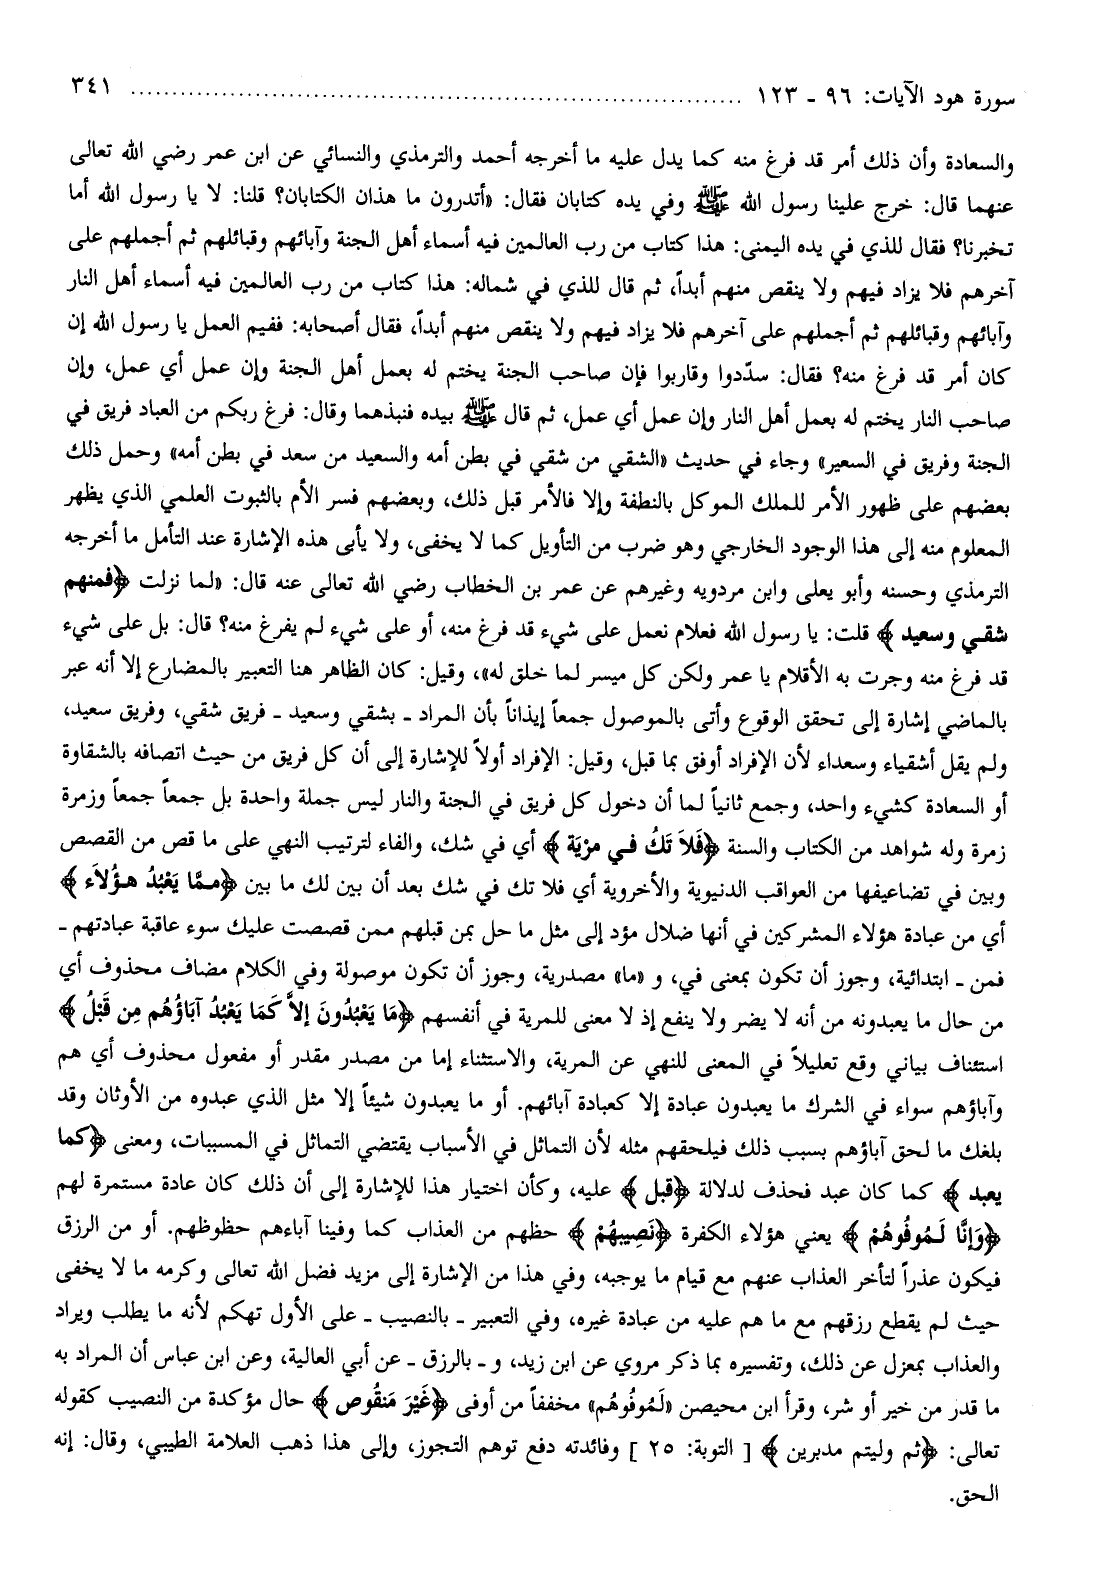 سورة هود الآيات: ٩٦ - ١٢٣ ................................................................ ٣٤١
والسعادة وأن ذلك أمر قد فرغ منه كما يدل عليه ما أخرجه أحمد والترمذي والنسائي عن ابن عمر رضي الله تعالى
عنهما قال: خرج علينا رسول الله ﷺ وفي يده كتابان فقال: «أتدرون ما هذان الكتابان؟ قلنا: لا يا رسول الله أما
تخبرنا؟ فقال للذي في يده اليمنى: هذا كتاب من رب العالمين فيه أسماء أهل الجنة وآبائهم وقبائلهم ثم أجملهم على
آخرهم فلا يزاد فيهم ولا ينقص منهم أبداً، ثم قال للذي في شماله: هذا كتاب من رب العالمين فيه أسماء أهل النار
وآبائهم وقبائلهم ثم أجملهم على آخرهم فلا يزاد فيهم ولا ينقص منهم أبداً، فقال أصحابه: ففيم العمل يا رسول الله إن
كان أمر قد فرغ منه؟ فقال: سدّدوا وقاربوا فإن صاحب الجنة يختم له بعمل أهل الجنة وإن عمل أي عمل، وإن
صاحب النار يختم له بعمل أهل النار وإن عمل أي عمل، ثم قال ﷺ بيده فنبذهما وقال: فرغ ربكم من العباد فريق في
الجنة وفريق في السعير» وجاء في حديث «الشقي من شقي في بطن أمه والسعيد من سعد في بطن أمه» وحمل ذلك
بعضهم على ظهور الأمر للملك الموكل بالنطفة وإلا فالأمر قبل ذلك، وبعضهم فسر الأم بالثبوت العلمي الذي يظهر
المعلوم منه إلى هذا الوجود الخارجي وهو ضرب من التأويل كما لا يخفى، ولا يأبى هذه الإشارة عند التأمل ما أخرجه
الترمذي وحسنه وأبو يعلى وابن مردويه وغيرهم عن عمر بن الخطاب رضي الله تعالى عنه قال: «لما نزلت ﴿فمنهم
شقي وسعيد﴾ قلت: يا رسول الله فعلام نعمل على شيء قد فرغ منه، أو على شيء لم يفرغ منه؟ قال: بل على شيء
قد فرغ منه وجرت به الأقلام يا عمر ولكن كل ميسر لما خلق له»، وقيل: كان الظاهر هنا التعبير بالمضارع إلا أنه عبر
بالماضي إشارة إلى تحقق الوقوع وأتى بالموصول جمعاً إيذاناً بأن المراد ـ بشقي وسعيد ـ فريق شقي، وفريق سعيد،
ولم يقل أشقياء وسعداء لأن الإفراد أوفق بما قبل، وقيل: الإفراد أولاً للإشارة إلى أن كل فريق من حيث اتصافه بالشقاوة
أو السعادة كشيء واحد، وجمع ثانياً لما أن دخول كل فريق في الجنة والنار ليس جملة واحدة بل جمعاً جمعاً وزمرة
زمرة وله شواهد من الكتاب والسنة ﴿فَلاَ تَكُ في مرْيَة﴾ أي في شك، والفاء لترتيب النهي على ما قص من القصص
وبين في تضاعيفها من العواقب الدنيوية والأخروية أي فلا تك في شك بعد أن بين لك ما بين ﴿ممَّا يَعْبُدُ هؤُلاَء﴾
أي من عبادة هؤلاء المشركين في أنها ضلال مؤد إلى مثل ما حل بمن قبلهم ممن قصصت عليك سوء عاقبة عبادتهم ـ
فمن ـ ابتدائية، وجوز أن تكون بمعنى في، و «ما» مصدرية، وجوز أن تكون موصولة وفي الكلام مضاف محذوف أي
من حال ما يعبدونه من أنه لا يضر ولا ينفع إذ لا معنى للمرية في أنفسهم ﴿مَا يَعْبُدُونَ إلاَّ كَمَا يَعْبُدُ آبَاؤُهُم مِن قَبْلُ﴾
استئناف بياني وقع تعليلاً في المعنى للنهي عن المرية، والاستثناء إما من مصدر مقدر أو مفعول محذوف أي هم
وآباؤهم سواء في الشرك ما يعبدون عبادة إلا كعبادة آبائهم. أو ما يعبدون شيئاً إلا مثل الذي عبدوه من الأوثان وقد
بلغك ما لحق آباؤهم بسبب ذلك فيلحقهم مثله لأن التماثل في الأسباب يقتضي التماثل في المسببات، ومعنى ﴿كما
يعبد﴾ كما كان عبد فحذف لدلالة ﴿قبل﴾ عليه، وكأن اختيار هذا للإشارة إلى أن ذلك كان عادة مستمرة لهم
﴿وَإنَّا لَمُوفُوهُمْ﴾ يعني هؤلاء الكفرة ﴿نَصِيبهُمْ﴾ حظهم من العذاب كما وفينا آباءهم حظوظهم. أو من الرزق
فيكون عذراً لتأخر العذاب عنهم مع قيام ما يوجبه، وفي هذا من الإشارة إلى مزيد فضل الله تعالى وكرمه ما لا يخفى
حيث لم يقطع رزقهم مع ما هم عليه من عبادة غيره، وفي التعبير ـ بالنصيب ـ على الأول تهكم لأنه ما يطلب ويراد
والعذاب بمعزل عن ذلك، وتفسيره بما ذكر مروي عن ابن زيد، و ـ بالرزق ـ عن أبي العالية، وعن ابن عباس أن المراد به
ما قدر من خير أو شر، وقرأ ابن محيصن «لَمُوفُوهُم» مخففاً من أوفى ﴿غَيْرَ مَنقُوص﴾ حال مؤكدة من النصيب كقوله
تعالى: ﴿ثم وليتم مدبرين﴾ [ التوبة: ٢٥ ] وفائدته دفع توهم التجوز، وإلى هذا ذهب العلامة الطيبي، وقال: إنه
الحق.